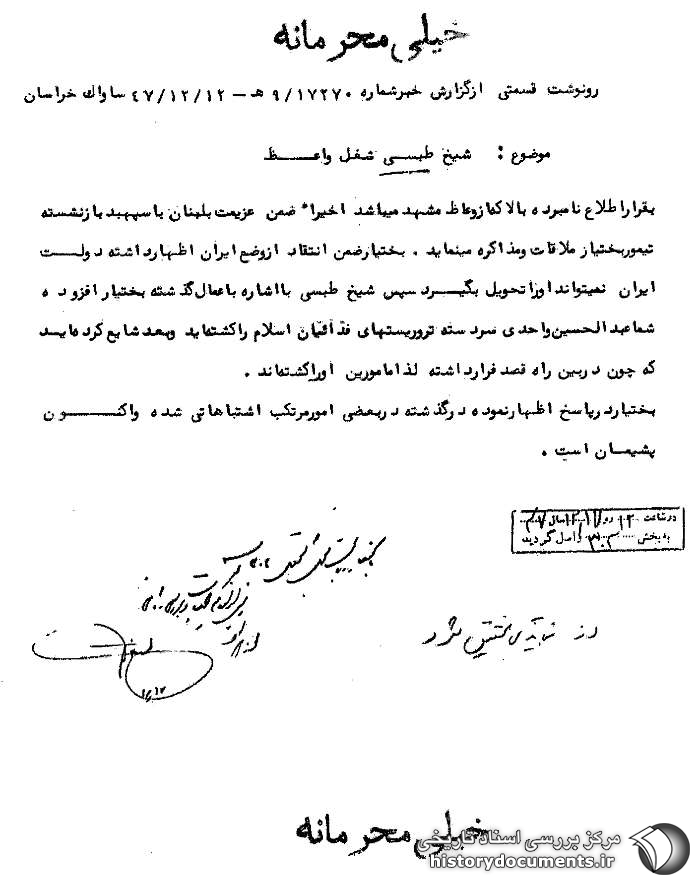 خیلی محرمانه
رونوشت قسمتی ازگزارش خبرشماره ۹/۱۷۲۷۰ هـ – ۴۷/۱۲/۱۲ ساواک خراسان
موضوع : شیخ طبسی شغل واعظ
بقراراطلاع نامبرده بالا که ازوعاظ مشهد میباشد اخیراً ضمن عزیمت بلبنان باسپهبد بازنشسته
تیموربختیار ملاقات ومذاکره مینماید . بختیارضمن انتقاد ازوضع ایران اظهارداشته دولت
ایران نمیتواند اوراتحویل بگیرد سپس شیخ طبسی بااشاره باعمال گذشته بختیار افزوده
شماعبدالحسین واحدی سردسته تروریستهای فدائیان اسلام راکشتهاید وبعد شایع کردهاید
که چون دربین راه قصد فرارداشته لذا مامورین اوراکشتهاند .
بختیاردرپاسخ اظهارنموده درگذشته دربعضی امورمرتکب اشتباهاتی شده واکنون
پشیمان است .
درساعت ۱۳ روز ۱۷/۱۲ سال ۴۷
به بخش واصل گردید
خیلی محرمانه
مرکز بررسی اسناد تاریخی
historydocuments.ir